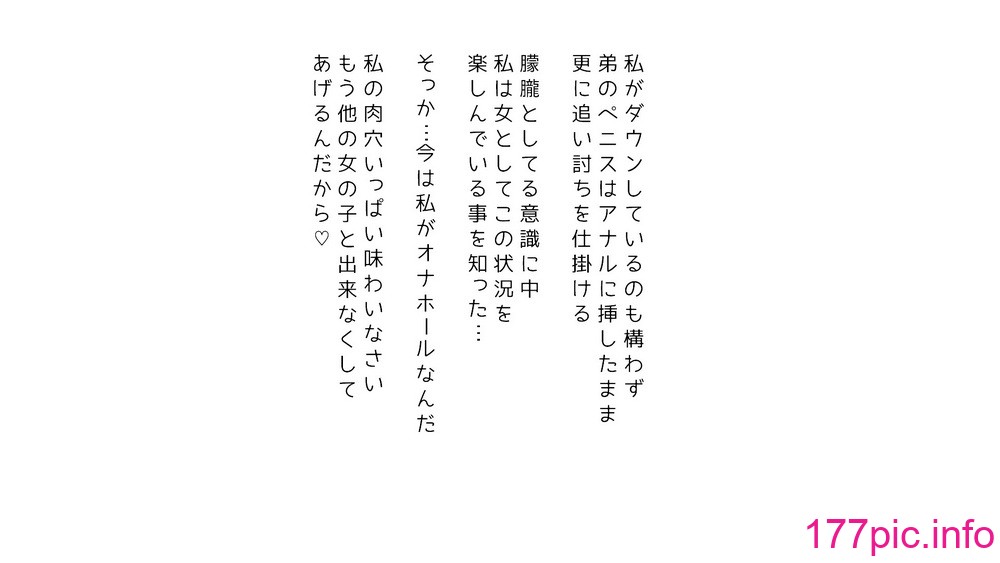 私がダウンしているのも構わず
弟のペニスはアナルに挿したまま
更に追い討ちを仕掛ける
朦朧としてる意識に中
私は女としてこの状況を
楽しんでいる事を知った…
そっか…今は私がオナホールなんだ
私の肉穴いっぱい味わいなさい
もう他の女の子と出来なくして
あげるんだから♡
177pic.info